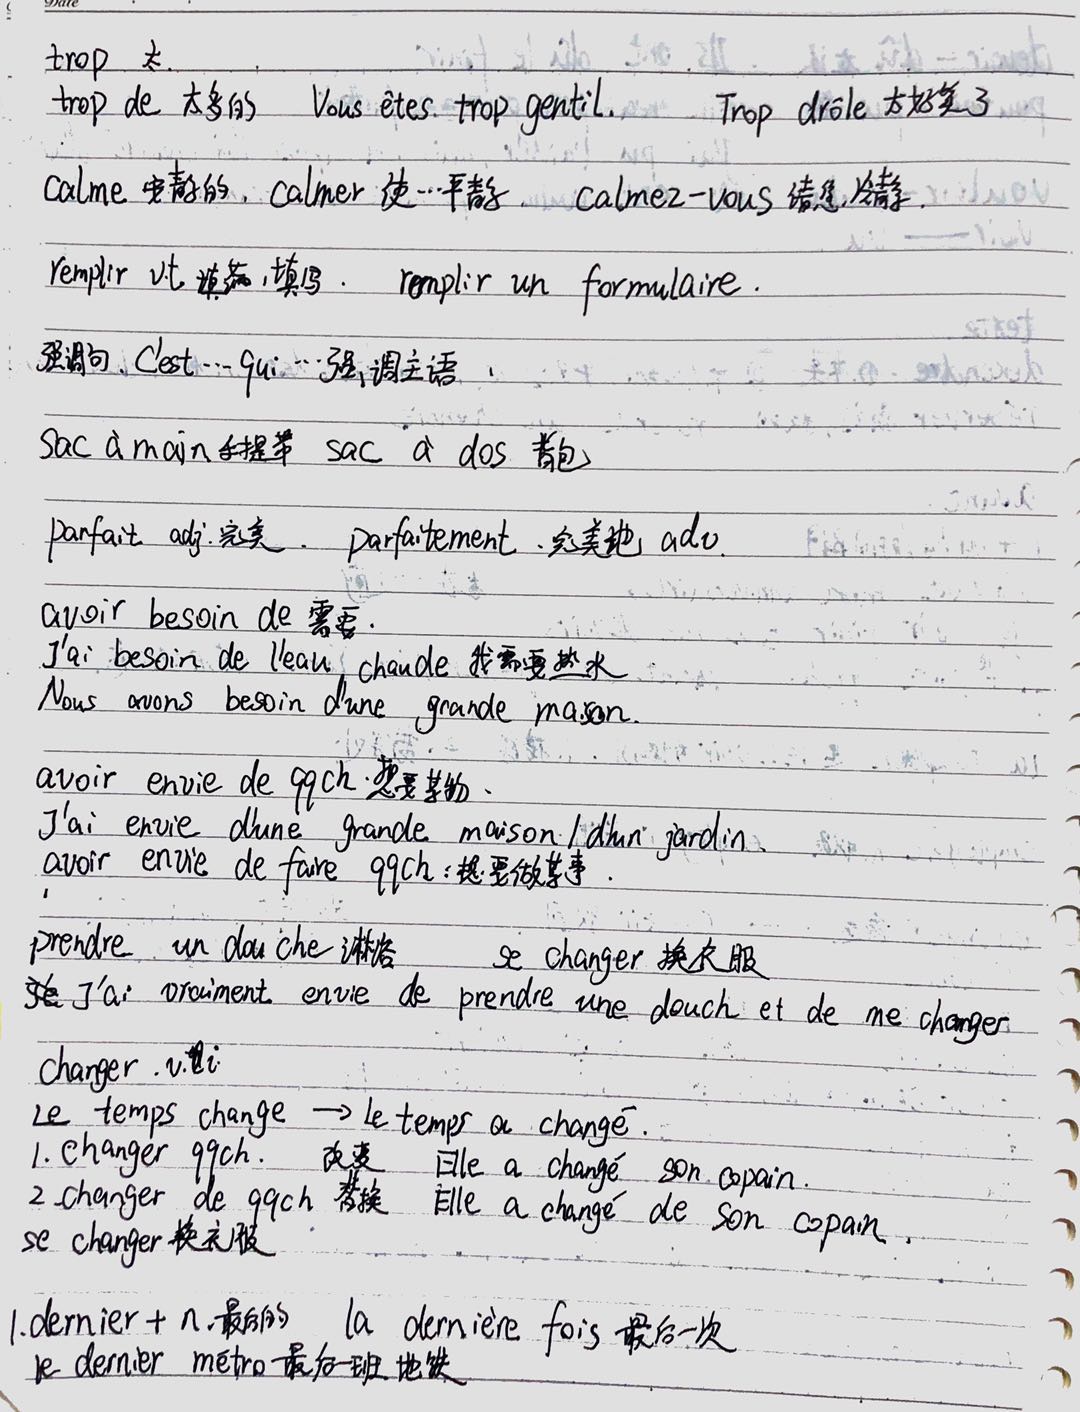 Date
trop 太.
trop de 太多的 Vous êtes trop gentil. Trop drôle 太好笑了
calme 安静的, calmer 使…平静. calmez-vous 请您冷静.
remplir v.t. 填满, 填写. remplir un formulaire.
强调句. C'est … qui … 强调主语
sac à main 手提带 sac à dos 背包
parfait adj. 完美. parfaitement. 完美地 adv.
avoir besoin de 需要.
J'ai besoin de l'eau chaude 我需要热水
Nous avons besoin d'une grande maison.
avoir envie de qqch. 想要某物.
J'ai envie d'une grande maison / d'un jardin.
avoir envie de faire qqch: 想要做某事.
prendre un douche 淋浴 se changer 换衣服
J'ai vraiment envie de prendre une douch et de me changer
changer. v.i.
Le temps change → Le temps a changé.
1. Changer qqch. 改变 Elle a changé son copain.
2. changer de qqch 替换 Elle a changé de son copain.
se changer 换衣服
1. dernier + n. 最后的 la dernière fois 最后一次
le dernier métro 最后一班地铁